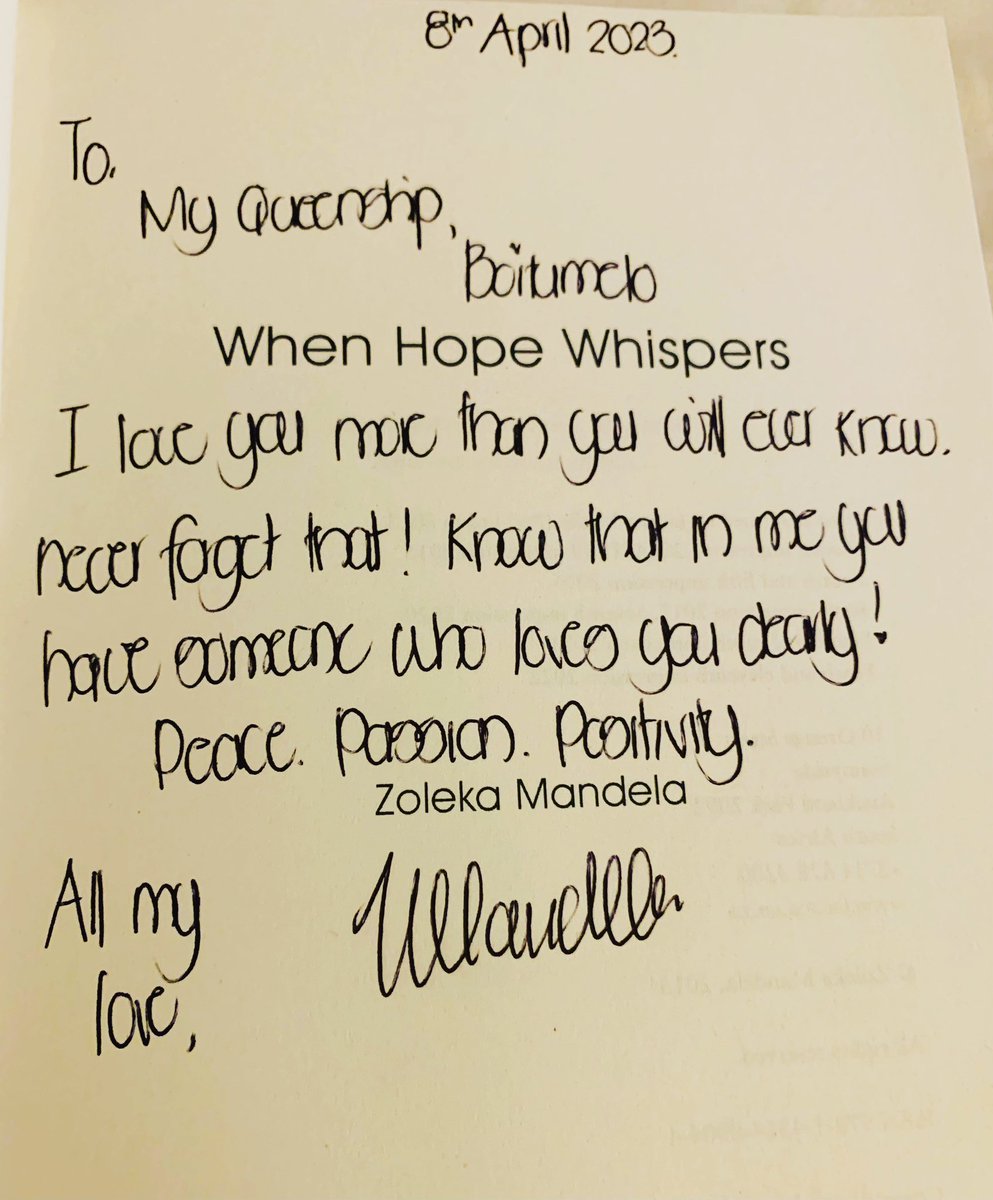 8th April 2023.
To.
My Queenship,
Boitumelo
When Hope Whispers
I love you more than you will ever know.
never forget that! Know that in me you
have someone who loves you dearly!
Peace. Passion. Positivity.
Zoleka Mandela
All my
love,